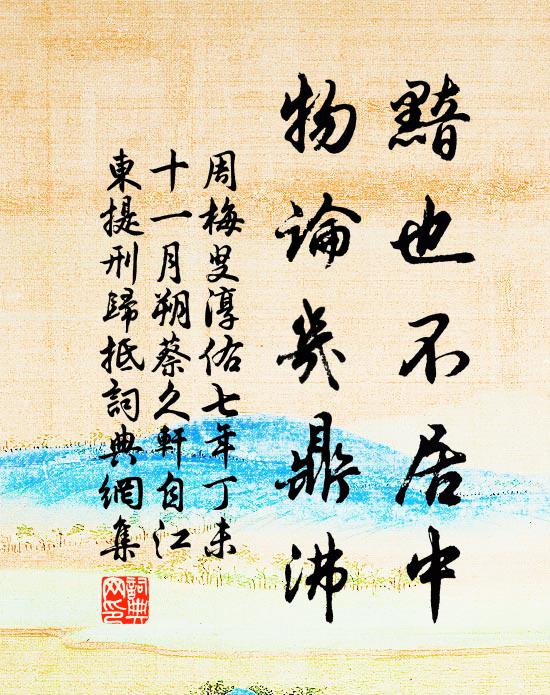 黯也不居中
物論幾鼎沸
周梅叟淳佑七年丁未
十一月朔蔡久軒自江
東提刑歸抵詞典網集
詞典
網印